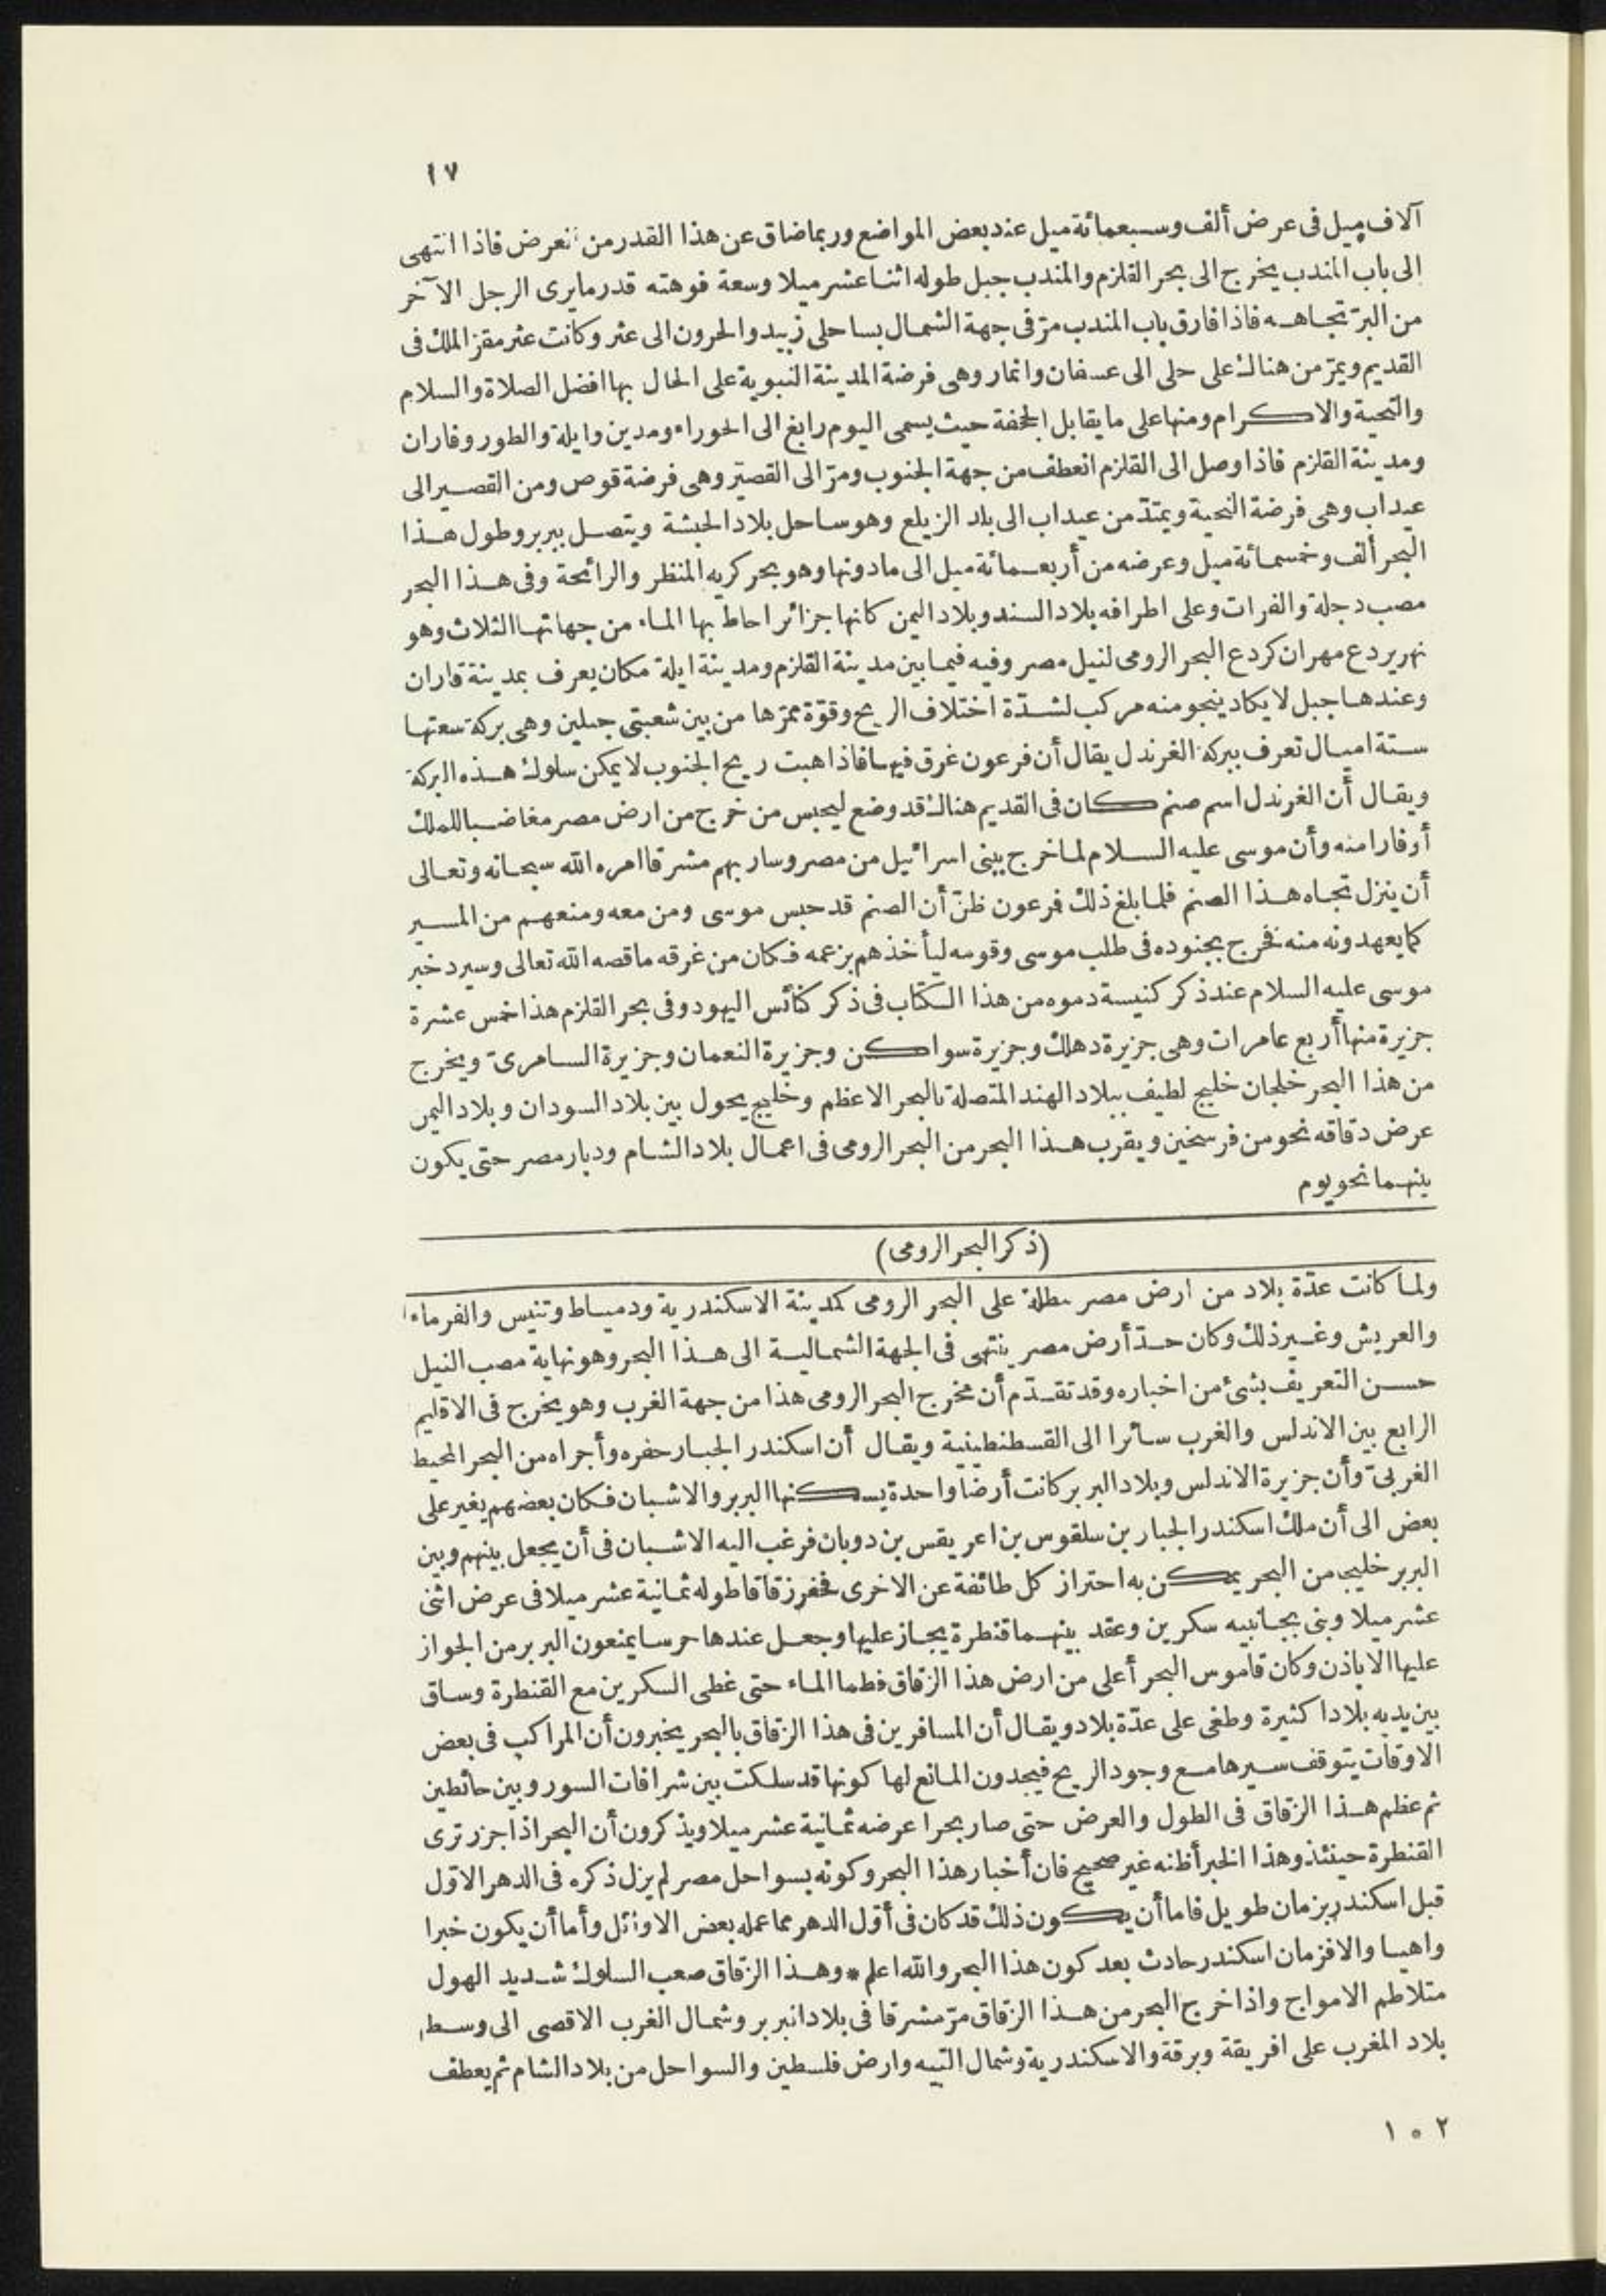 ١٧
آلاف ميل فى عرض ألف وسبعمائة ميل عند بعض المواضع وربما ضاق عن هذا القدر من العرض فاذا انتهى
الى باب المندب يخرج الى بحر القلزم والمندب جبل طوله اثنا عشر ميلا وسعة فوهته قدر ما يرى الرجل الآخر
من البرّ تجاهه فاذا فارق باب المندب مرّ فى جهة الشمال بساحلى زبيد والحرون الى عثر وكانت عثر مقرّ الملك فى
القديم ويمرّ من هنالك على حلى الى عسفان وانمار وهى فرضة المدينة النبوية على الحال بها افضل الصلاة والسلام
والتحية والاكرام ومنها على ما يقابل الجحفة حيث يسمى اليوم رابغ الى الحوراء ومدين وايلة والطور وفاران
ومدينة القلزم فاذا وصل الى القلزم انعطف من جهة الجنوب ومرّ الى القصير وهى فرضة قوص ومن القصير الى
عيداب وهى فرضة البجية ويمتدّ من عيداب الى بلد الزيلع وهو ساحل بلاد الحبشة ويتصل ببربر وطول هذا
البحر ألف وخمسمائة ميل وعرضه من أربعمائة ميل الى ما دونها وهو بحر كريه المنظر والرائحة وفى هذا البحر
مصب دجلة والفرات وعلى اطرافه بلاد السند وبلاد اليمن كانها جزائر احاط بها الماء من جهاتها الثلاث وهو
نهر يردع مهران كردع البحر الرومى لنيل مصر وفيه فيما بين مدينة القلزم ومدينة ايلة مكان يعرف بمدينة فاران
وعندها جبل لا يكاد ينجو منه مركب لشدّة اختلاف الريح وقوّة ممرّها من بين شعبتى جبلين وهى بركة سعتها
ستة اميال تعرف ببركة الغرندل يقال أن فرعون غرق فيها فاذا هبت ريح الجنوب لا يمكن سلوك هذه البركة
ويقال أن الغرندل اسم صنم كان فى القديم هنالك قد وضع ليحبس من خرج من ارض مصر مغاضبا للملك
أو فارا منه وأن موسى عليه السلام لما خرج ببنى اسرائيل من مصر وسار بهم مشرقا امره الله سبحانه وتعالى
أن ينزل تجاه هذا الصنم فلما بلغ ذلك فرعون ظنّ أن الصنم قد حبس موسى ومن معه ومنعهم من المسير
كما يعهدونه منه فخرج بجنوده فى طلب موسى وقومه ليأخذهم بزعمه فكان من غرقه ما قصه الله تعالى وسيرد خبر
موسى عليه السلام عند ذكر كنيسة دموه من هذا الكتاب فى ذكر كنائس اليهود وفى بحر القلزم هذا خمس عشرة
جزيرة منها أربع عامرات وهى جزيرة دهلك وجزيرة سواكن وجزيرة النعمان وجزيرة السامرىّ ويخرج
من هذا البحر خلجان خليج لطيف ببلاد الهند المتصلة بالبحر الاعظم وخليج يحول بين بلاد السودان وبلاد اليمن
عرض دقاقه نحو من فرسخين ويقرب هذا البحر من البحر الرومى فى اعمال بلاد الشام وديار مصر حتى يكون
بينهما نحو يوم
(ذكر البحر الرومى)
ولما كانت عدّة بلاد من ارض مصر مطلة على البحر الرومى كمدينة الاسكندرية ودمياط وتنيس والفرماء
والعريش وغير ذلك وكان حدّ أرض مصر ينتهى فى الجهة الشمالية الى هذا البحر وهو نهاية مصب النيل
حسن التعريف بشئ من اخباره وقد تقدّم أن مخرج البحر الرومى هذا من جهة الغرب وهو يخرج فى الاقليم
الرابع بين الاندلس والغرب سائرا الى القسطنطينية ويقال أن اسكندر الجبار حفره وأجراه من البحر المحيط
الغربىّ وأن جزيرة الاندلس وبلاد البربر كانت أرضا واحدة يسكنها البربر والاشبان فكان بعضهم يغير على
بعض الى أن ملك اسكندر الجبار بن سلقوس بن اعريقس بن دوبان فرغب اليه الاشبان فى أن يجعل بينهم وبين
البربر خليجا من البحر يمكن به احتراز كل طائفة عن الاخرى فحفر زقاقا طوله ثمانية عشر ميلا فى عرض اثنى
عشر ميلا وبنى بجانبيه سكرين وعقد بينهما قنطرة يجاز عليها وجعل عندها حرسا يمنعون البربر من الجواز
عليها الا باذن وكان قاموس البحر أعلى من ارض هذا الزقاق فطما الماء حتى غطى السكرين مع القنطرة وساق
بين يديه بلادا كثيرة وطغى على عدّة بلاد ويقال أن المسافرين فى هذا الزقاق بالبحر يخبرون أن المراكب فى بعض
الاوقات يتوقف سيرها مع وجود الريح فيجدون المانع لها كونها قد سلكت بين شرافات السور وبين حائطين
ثم عظم هذا الزقاق فى الطول والعرض حتى صار بحرا عرضه ثمانية عشر ميلا ويذكرون أن البحر اذا جزر ترى
القنطرة حينئذ وهذا الخبر أظنه غير صحيح فان أخبار هذا البحر وكونه بسواحل مصر لم يزل ذكره فى الدهر الاوّل
قبل اسكندر بزمان طويل فاما أن يكون ذلك قد كان فى أوّل الدهر مما عمله بعض الاوائل وأما أن يكون خبرا
واهيا والا فزمان اسكندر حادث بعد كون هذا البحر والله اعلم * وهذا الزقاق صعب السلوك شديد الهول
متلاطم الامواج واذا خرج البحر من هذا الزقاق مرّ مشرقا فى بلاد البربر وشمال الغرب الاقصى الى وسط
بلاد المغرب على افريقة وبرقة والاسكندرية وشمال التيه وارض فلسطين والسواحل من بلاد الشام ثم يعطف
٢ ٥ ١